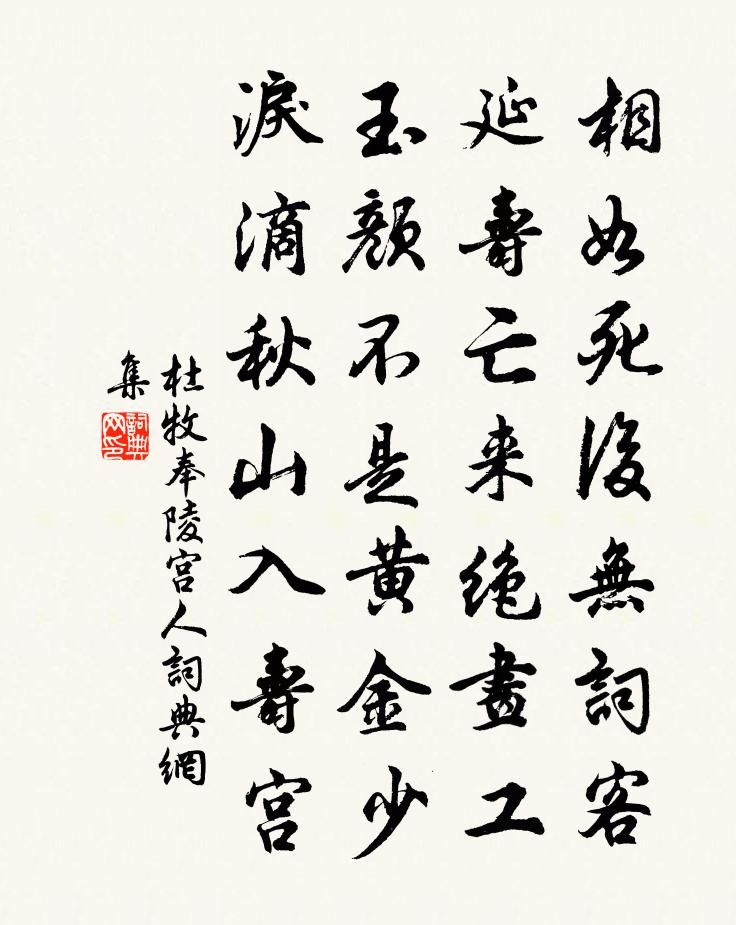 相如死後無詞客
延壽亡来絶畫工
玉顔不是黄金少
淚滴秋山入壽宫
杜牧奉陵宫人詞典網
集
詞典
网印